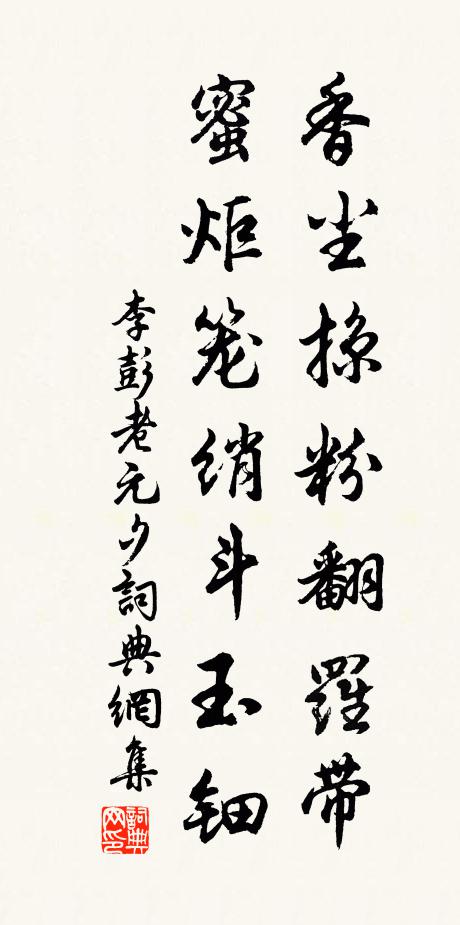 香尘掠粉翻羅帶
蜜炬笼绡斗玉钿
李彭老元夕詞典網集
詞典网印